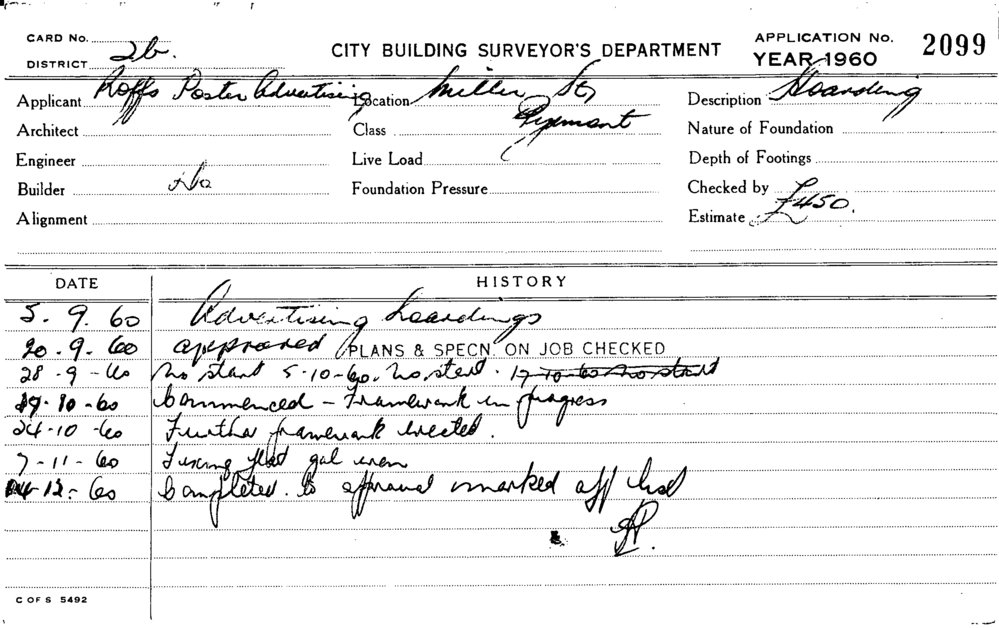 CARD No. CITY BUILDING SURVEYOR'S DEPARTMENT APPLICATION No. 2099
DISTRICT 2b. YEAR 1960
Applicant Roffs Poster Advertising Location Miller St, Description Hoarding
Architect Class Pyrmont Nature of Foundation
Engineer Live Load Depth of Footings
Builder Do Foundation Pressure Checked by
Alignment Estimate £450.
DATE HISTORY
5. 9. 60 Advertising hoardings
20. 9. 60 approved PLANS & SPECN. ON JOB CHECKED
28-9-60 No start 5-10-60. No start. 17-10-60 No start
19-10-60 Commenced - Framework in progress
24-10-60 Further framework erected.
7-11-60 Fixing flat gal iron
-12-60 Completed to approval marked off list
C OF S 5492